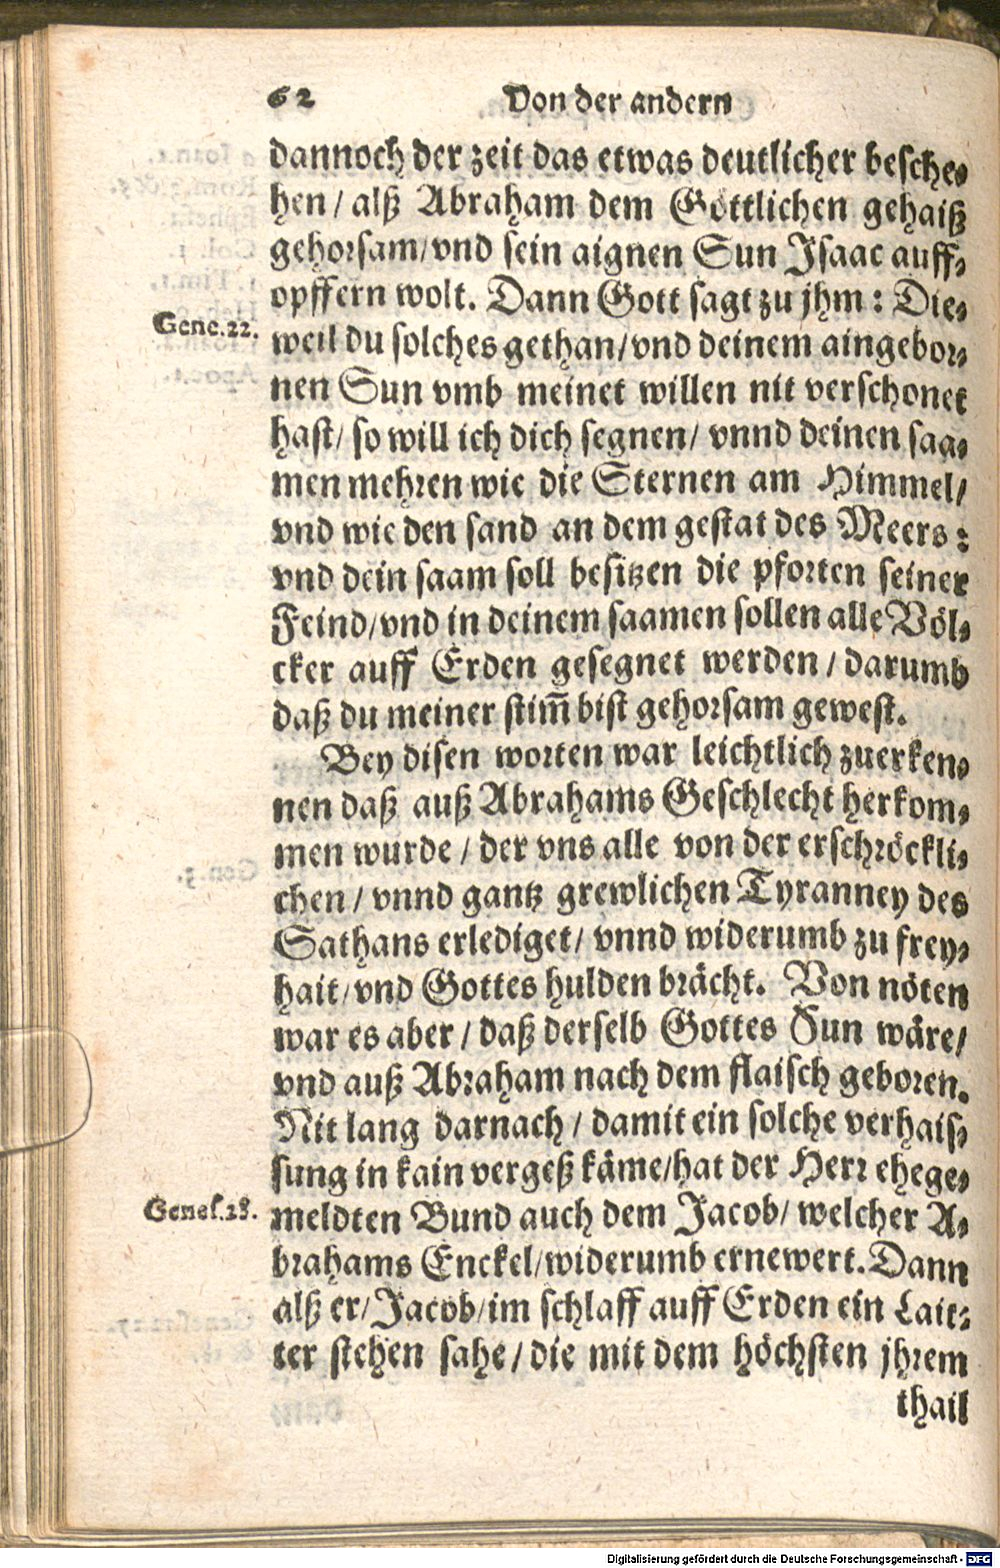 62 Von der andern
dannoch der zeit das etwas deutlicher besche-
hen / alß Abraham dem Göttlichen gehaiß
gehorsam / vnd sein aignen Sun Isaac auff-
opffern wolt. Dann Gott sagt zu jhm : Die-
Gene.22.
weil du solches gethan / vnd deinem aingebor-
nen Sun vmb meinet willen nit verschonet
hast / so will ich dich segnen / vnnd deinen saa-
men mehren wie die Sternen am Himmel /
vnd wie den sand an dem gestat des Meers :
vnd dein saam soll besitzen die pforten seiner
Feind / vnd in deinem saamen sollen alle Völ-
cker auff Erden gesegnet werden / darumb
daß du meiner stim̃ bist gehorsam gewest.
Bey disen worten war leichtlich zuerken-
nen daß auß Abrahams Geschlecht herkom-
men wurde / der vns alle von der erschröckli-
chen / vnnd gantz grewlichen Tyranney des
Sathans erlediget / vnnd widerumb zu frey-
hait / vnd Gottes hulden brächt. Von nöten
war es aber / daß derselb Gottes Sun wäre /
vnd auß Abraham nach dem flaisch geboren.
Nit lang darnach / damit ein solche verhais-
sung in kain vergeß käme / hat der Herr ehege-
Genes.28.
meldten Bund auch dem Jacob / welcher A-
brahams Enckel / widerumb ernewert. Dann
alß er / Jacob / im schlaff auff Erden ein Lait-
ter stehen sahe / die mit dem höchsten jhrem
thail
Digitalisierung gefördert durch die Deutsche Forschungsgemeinschaft - DFG